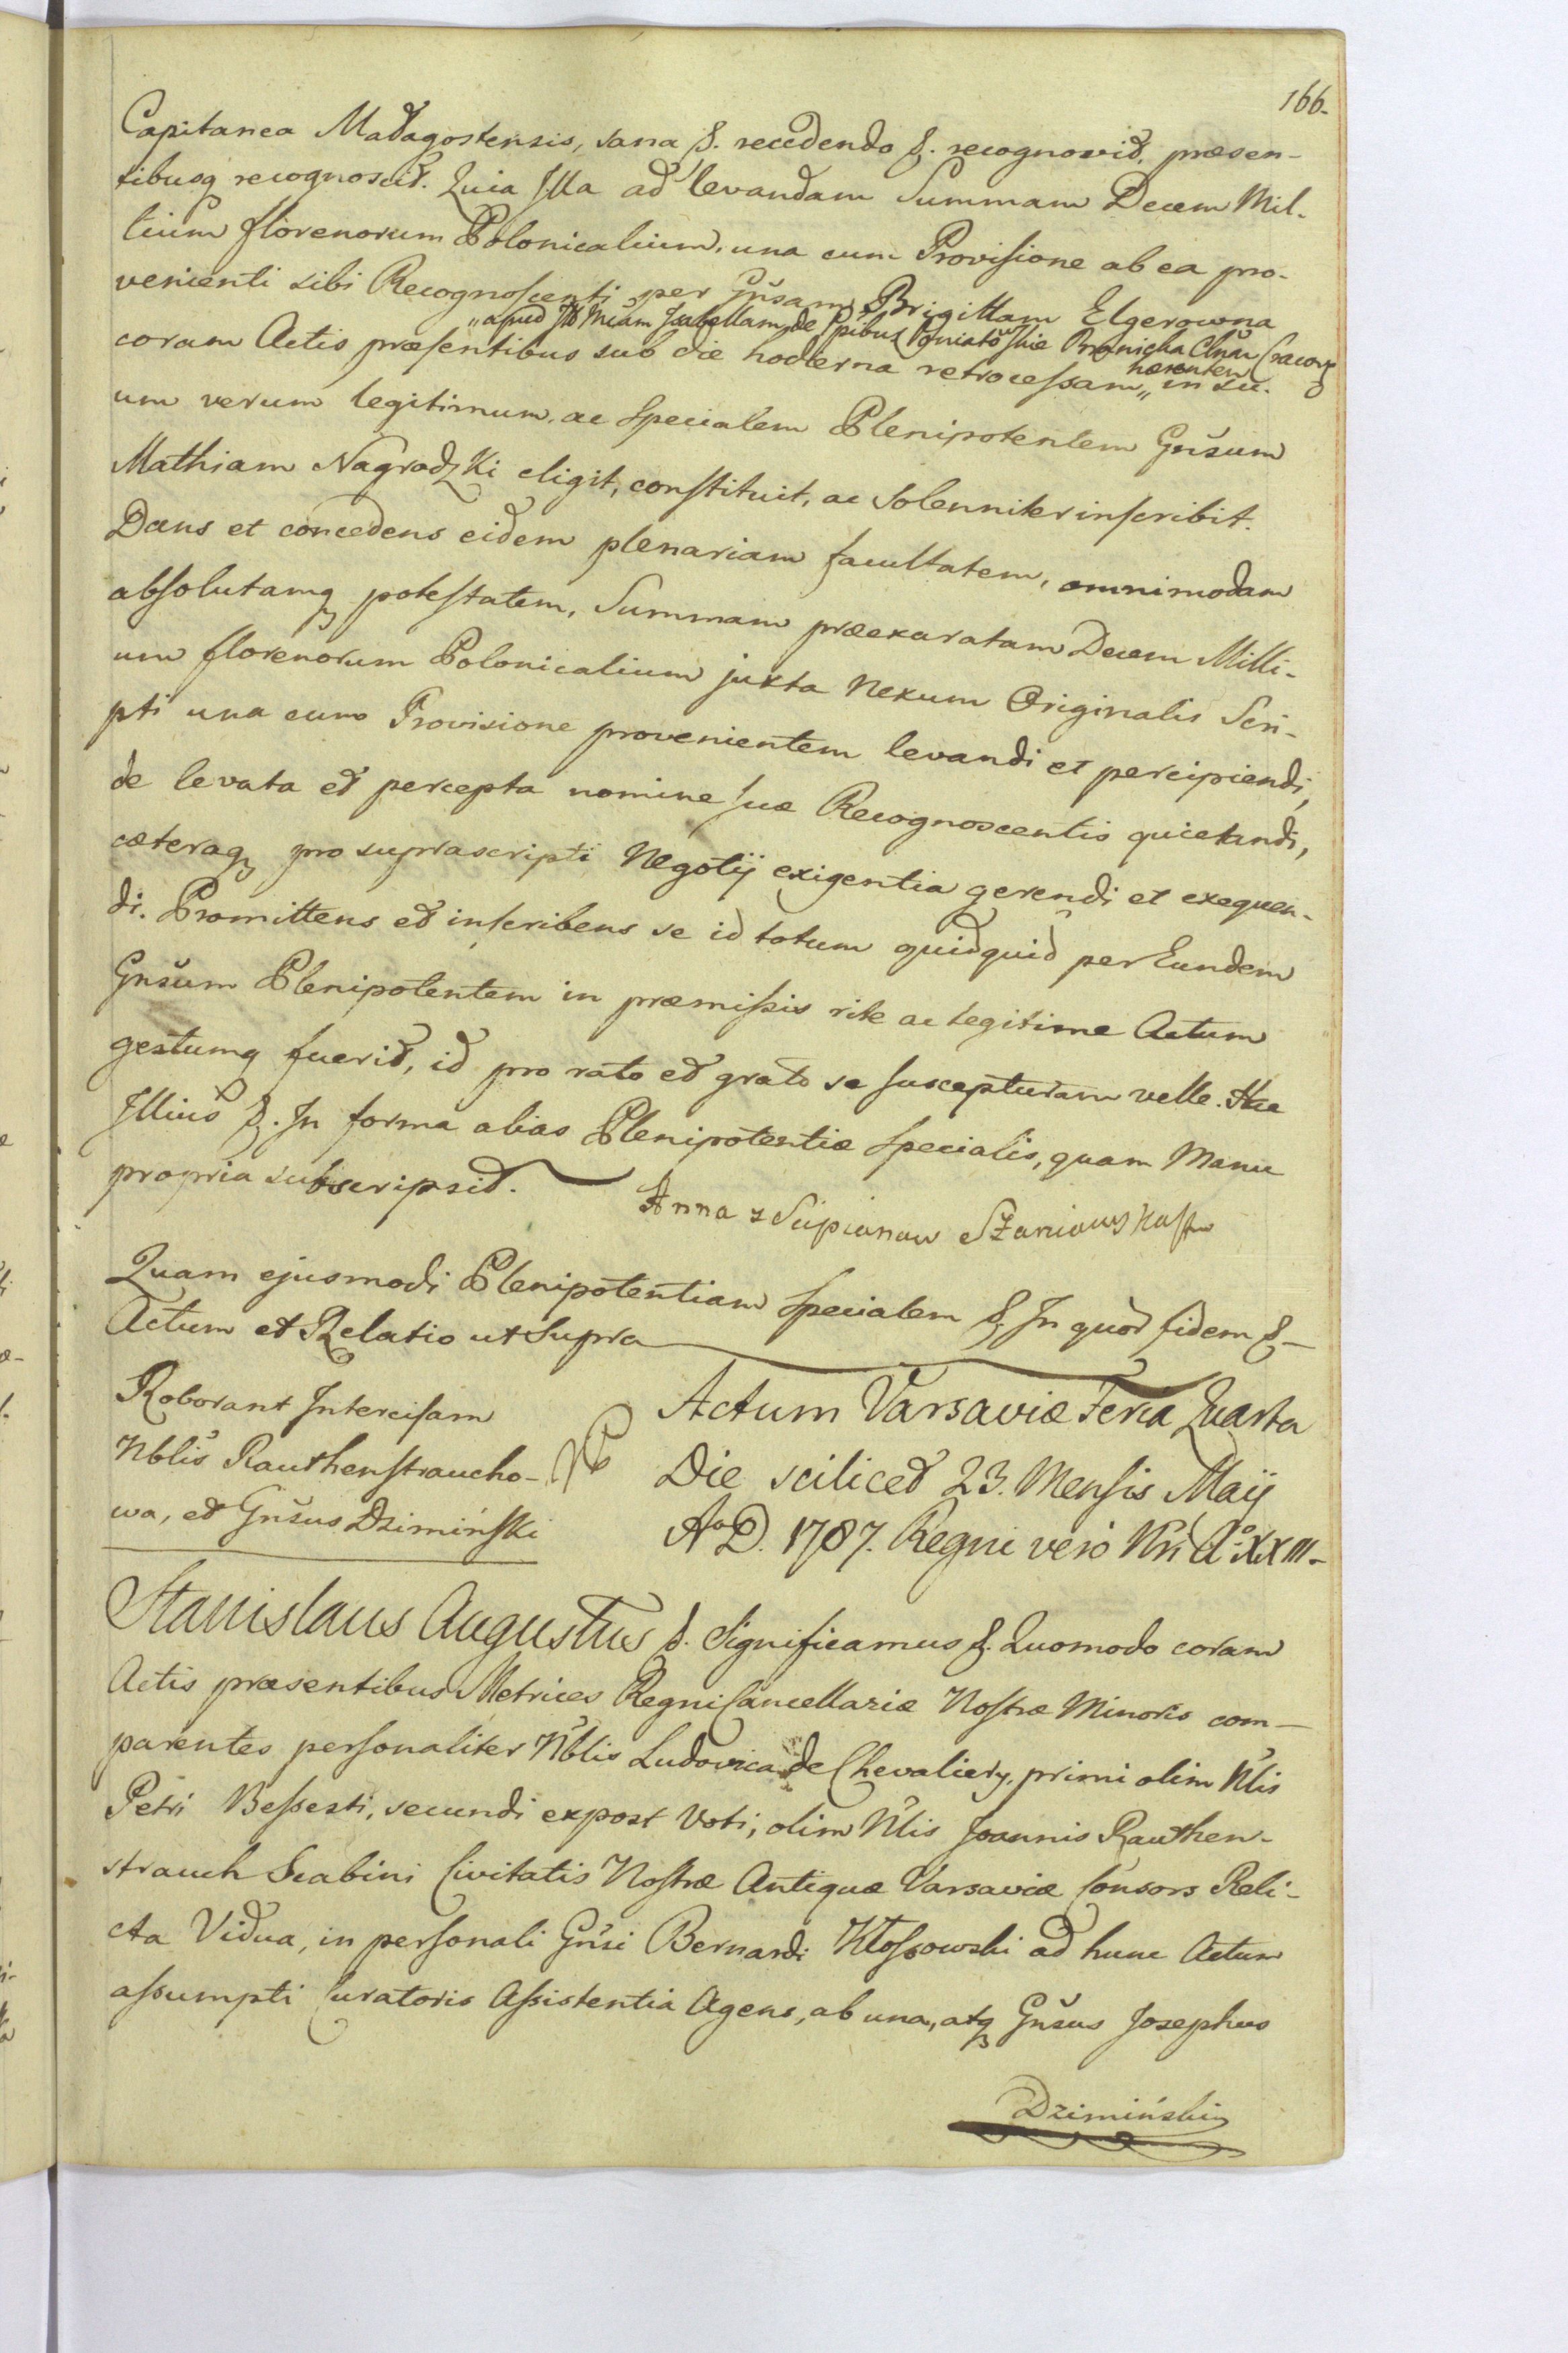 166.
Capitanea Madagostensis, sana &. recedendo &. recognovit, præsen-
tibusq recognoscit. Quia Illa ad levandam Summam Decem Mil-
lium florenorum Polonicalium, una cum Provisione ab ea pro-
venienti sibi Recognoscenti per Gnsam Brigittam Elgerowna
„apud Isabellam de Ppibus Poniatowskie Branicka Clnam Cracov
coram Actis præsentibus sub die hodierna retrocessam „ in su-
hærentem
um verum legitimum, ac Specialem Plenipotentem Gnsum
Mathiam Nagrodzki eligit, constituit, ac Solenniter inscribit.
Dans et concedens eidem plenariam facultatem, omnimodam
absolutamq potestatem, Summam præexaratam Decem Milli-
um florenorum Polonicalium juxta Nexum Originalis Scri-
pti una cum Provisione provenientem levandi et percipiendi,
de levata et percepta nomine suæ Recognoscentis quietandi,
cæteraq pro suprascripti Negotij exigentia gerendi et exequen-
di. Promittens et inscribens se id totum quidquid per Eundem
Gnsum Plenipotentem in præmissis rite ac legitime Actum
gestumq fuerit, id pro rato et grato se suscepturam velle. Hac
Illius &. In forma alias Plenipotentiæ Specialis, quam Manu
propria subscripsit.
Anna z Scipionow Szaniawska
Quam ejusmodi Plenipotentiam Specialem &. In quod fidem &
Actum et Relatio ut Supra
Roborant Intercisam
Nblis Rauthenstraucho-
wa, et Gnsus Dzimiński
Actum Varsaviæ Feria Quarta
Die scilicet 23. Mensis Maij
Ao D. 1787. Regni vero Nri Ao XXIII-
Stanislaus Augustus &. Significamus &. Quomodo coram
Actis præsentibus Metrices Regni Cancellariæ Nostræ Minoris com-
parentes personaliter Nblis Ludovica de Chevaliery, primi olim Nlis
Petri Bessesti, secundi expost Voti, olim Nlis Joannis Rauthen-
strauch Scabini Civitatis Nostræ Antiquæ Varsaviæ Consors Reli-
cta Vidua, in personali Gnsi Bernardi Kłossowski ad hunc Actum
assumpti Curatoris Assistentia Agens, ab una, atq Gnsus Josephus
Dzimiński